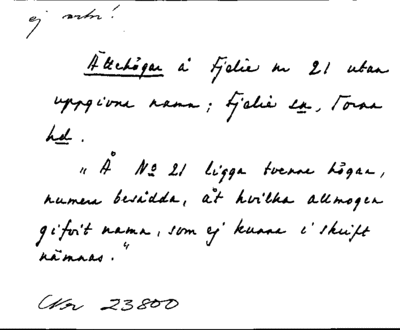 ej utr!
Ättehögar å Fjelie nr 21 utan
uppgivna namn; Fjelie sn, Torna
hd.
"Å No 21 ligga tvenne högar,
numera besådda, åt hvilka allmogen
gifvit namn, som ej kunna i skrift
nämnas."
23800